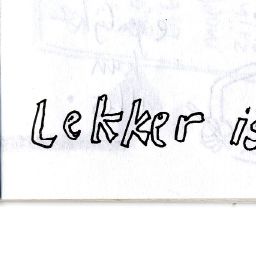 Lekker is